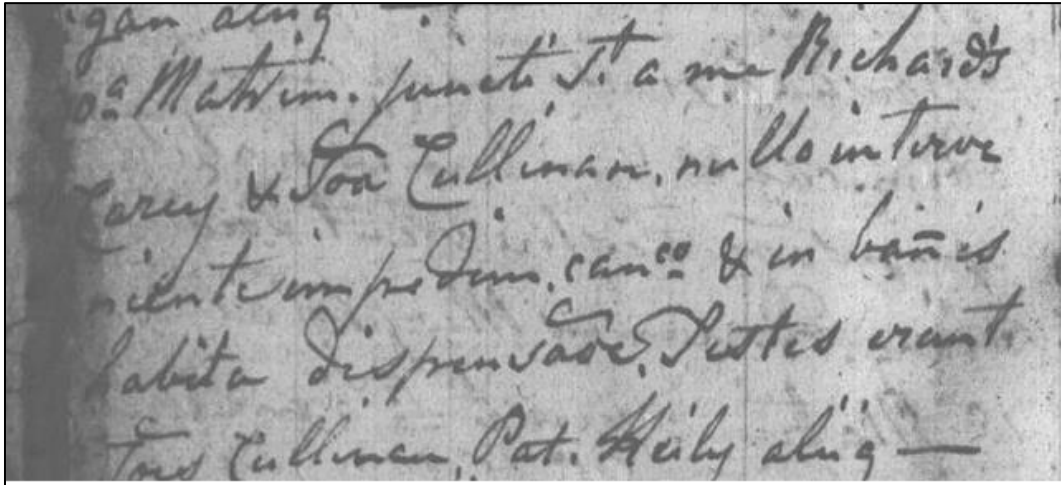 gan aliig —
8a Matrim. juncti st. a me Richards
Carey & Joa Cullinan, nullo interve
niente impedim. canco & in bañis
habita dispensaõe, Testes erant
Jnes Cullinan, Pat. Heily aliig —